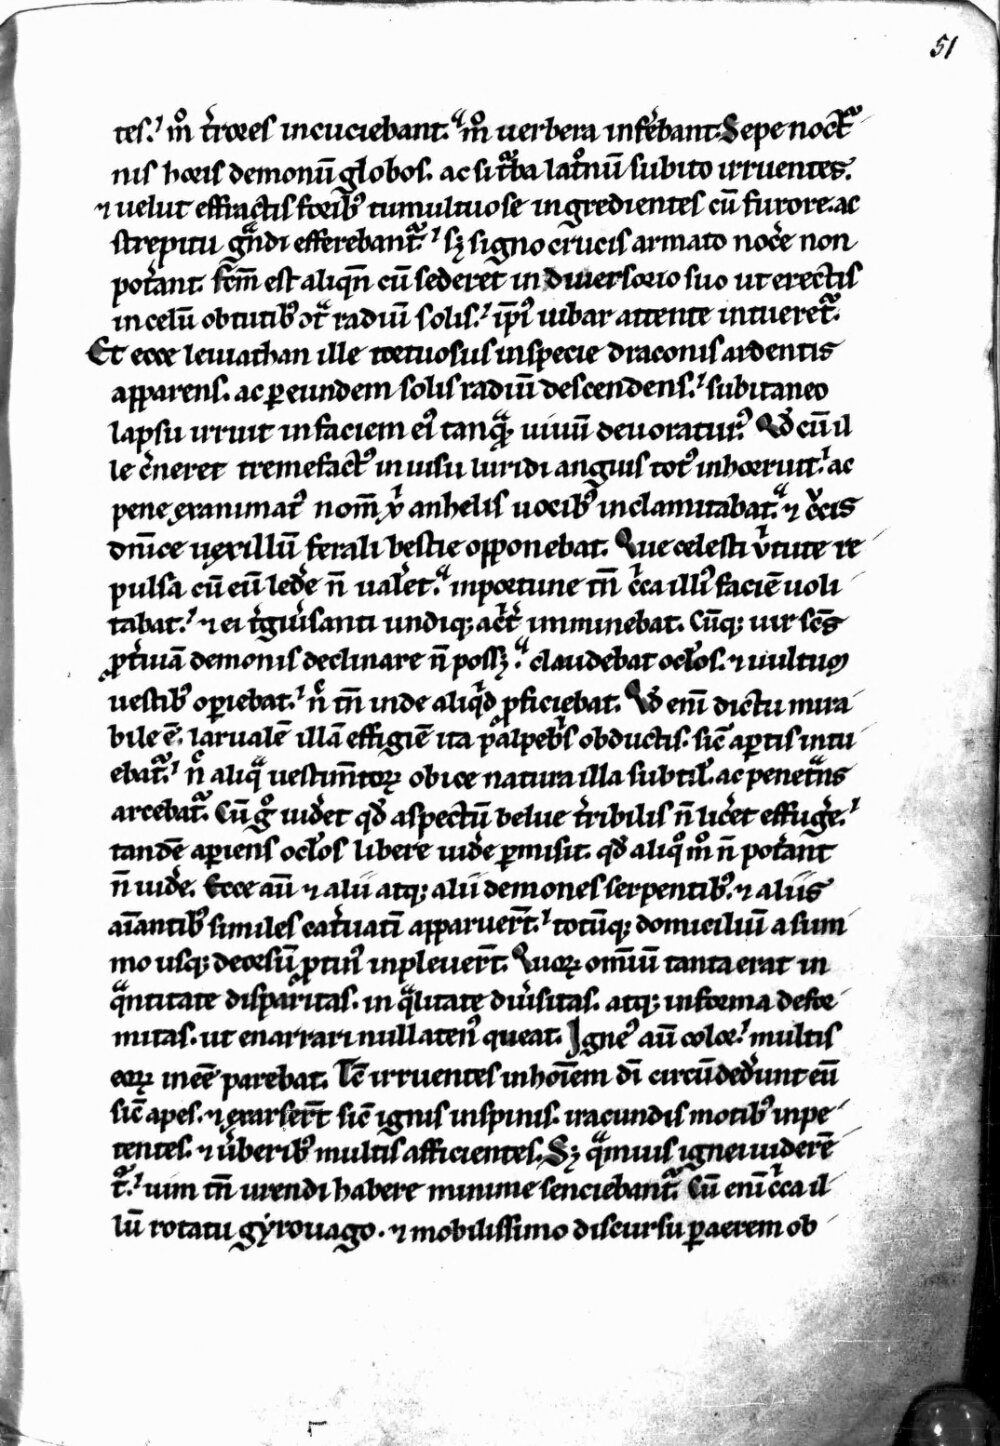 51
tes.' m̊ t̾rores incuciebant. m̊ uerbera inferebant. Sepe noct͛
nis horis demonū globos. ac si t̾ba lat̊num subito irruentes.
⁊ uelut effractis forib᷒ tumultuose ingredientes cū furore. ac
strepitu gͣndi efferebant͛.' sꝫ signo crucis armato nocͤe non
pot̾ant. fc̄m est aliqn̄ cū sederet in diuersorio suo ut erectis
in celū obtutib᷒ ot͛ radiū solis.' ip̄i᷒ iubar attente intueret͛.
Et ecce leuiathan ille tortuosus inspecie draconis ardentis
apparens. ac ꝑeundem solis radiū descendens.' subitaneo
lapsu irruit infaciem ei᷒ tanqͣ. uiuū deuoratur᷒. Qd̾ cū il
le c̾neret tremefact᷒ inuisu luridi anguis tot᷒ inhorruit.' ac
pene exanimat᷒ nom̄ xͥ anhelis uocib᷒ inclamitabat. ⁊ c̾cis
dn̄ice uexillū ferali bestie opponebat. Que celesti v̾tute re
pulsa cū eū led̾e n̄ ual̾et. inportune tn̄ cͥca illi᷒ faciē uoli
tabat.' ⁊ ei t̾giu̾santi undiqꝫ act̾ imminebat. Cūqꝫ uir sc̄s
ꝓt̾uiā demonis declinare n̄ possꝫ. claudebat oct̾os. ⁊ uultum
uestib᷒ oꝑiebat.' n͛ tn̄ inde aliqͥd ꝓficiebat. Qd̾ enī dictu mira
bile ē. larualē illā effigiē ita ꝑ palpeb͛s obductis. sic̄ aꝑtis intu
ebat͛.' n͛ aliqͣ uestim̄toꝝ obice natura illa subtil̾. ac penetͣns
arcebat͛. Cū g̊ uid̾et qd̾ aspectū belue t̾ribilis n̄ lic̾et effug̾e.'
tandē aꝑiens oct̾os libere uid̾e ꝑmisit. qd̾ aliq̊ m̊ n̄ pot̾ant
n̄ uid̾e. Ecce aū ⁊ alii atqꝫ alii demones serpentib᷒. ⁊ aliis
aīantib᷒ similes cat̾uatī apparuer̄t.' totūqꝫ domiciliū a sum
mo usqꝫ deorsū ꝓtin᷒ inpleuer̄t. Quoꝝ omniū tanta erat in
qͣntitate disparitas. in qͣlitate diu̾sitas. atqꝫ informa defor
mitas. ut enarrari nullaten᷒ queat. Igne᷒ aū color.' multis
eoꝝ ineē parebat. Tē irruentes inhoīem dī circūded̾unt eū
sic̄ apes. ⁊ exarser̄t sic̄ ignis inspinis. iracundis motib᷒ inpe
tentes. ⁊ u̾berib᷒ multis afficientes. Sꝫ qͣmuis ignei uiderē
t͛.' uim tn̄ urendi habere minime senciebant͛. Cū enī cͥca il
lū rotatu gẏrouago. ⁊ mobilissimo discursu ꝑaerem ob